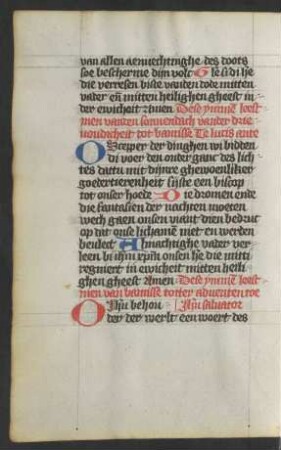 van allen aenuechtinghe des doots
soe bescherme dijn volc Glē si di he
die verresen biste vanden dode mitten
vader eñ mitten heilighen gheest in
der ewicheit Amen Dese ymme leest
men vanden sonnendach vander drie
voudicheit tot bamisse Te lucis ante
O Sceper der dinghen wi bidden
di voer den onder ganc des lich
tes dattu mit dijnre ghewoenliker
goedertierenheit sijste een biscop
tot onser hoede Die dromen ende
die fantasien der nachten moeten
wech gaen onsen viant dien bedruc
op dat onse lichamē niet en werden
bevlect Almachtighe vader ver
leen bi ihm xpm onsen hē die mitti
regniert in ewicheit mitten heili
ghen gheest Amen Dese ymme leest
men van bamisse totter adventen toe
O Ihū behou Ihū salvator
der der werlt een woert des